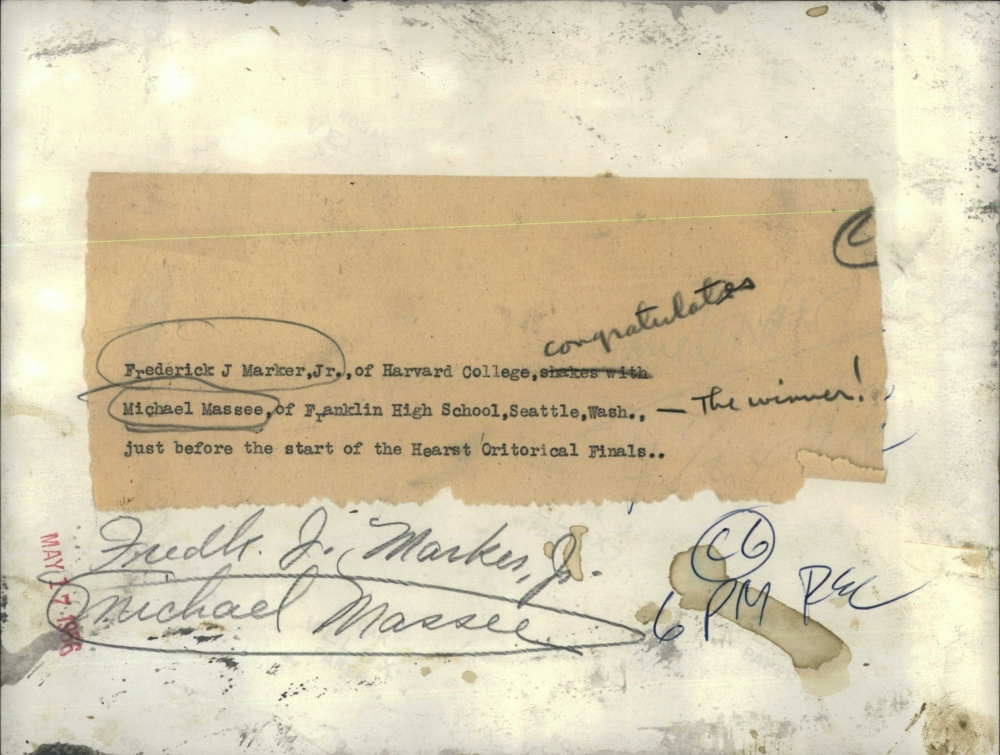 congratulates
Frederick J Marker,Jr.,of Harvard College,shakes with
Michael Massee,of Franklin High School,Seattle,Wash.,
— The winner!
just before the start of the Hearst Oritorical Finals..
Fredk. J. Marker, Jr.
Michael Massee
MAY 17 1956
C6
6 PM REC